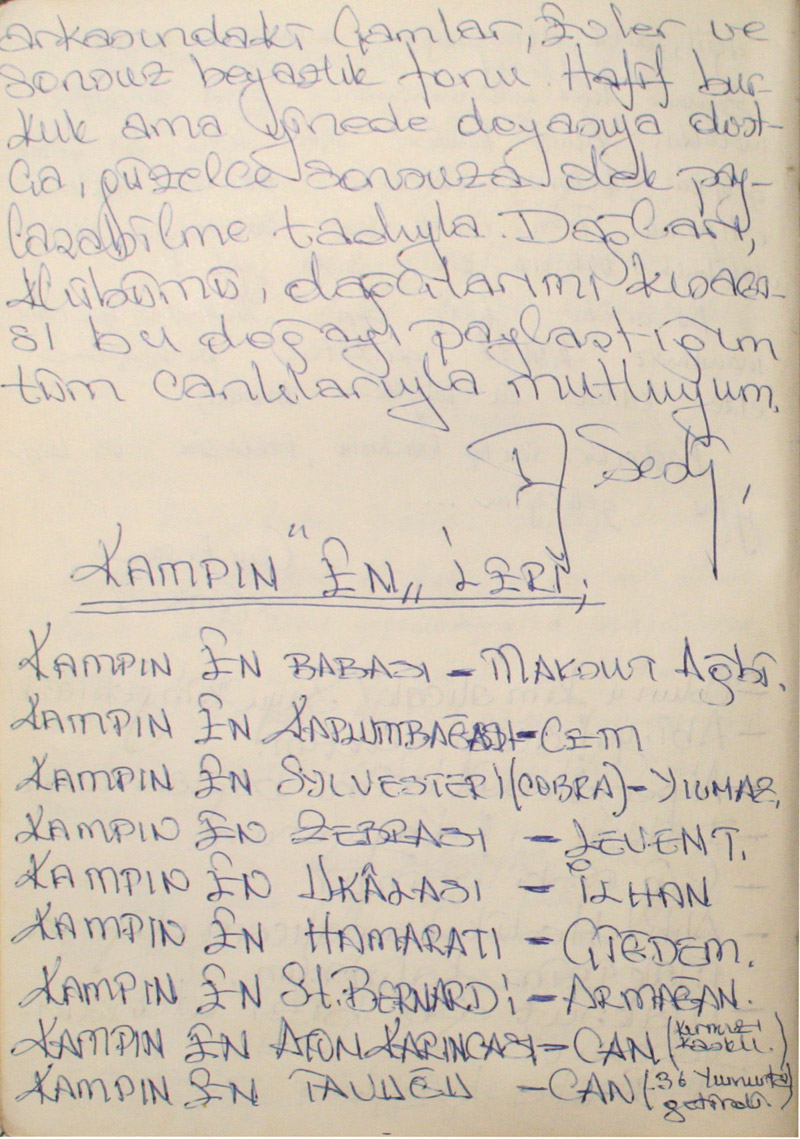 arkasındaki Çamlar, Evler ve
sonsuz beyazlık fonu. Hafif bur-
kuk ama yinede doyasıya dost-
ça, güzelce sonsuza dek pay-
laşabilme tadıyla. Dağları,
Klübümü, dağcılarımı kısaca-
sı bu doğayı paylaştığım
tüm canlılarıyla mutluyum.
Seda,
KAMPIN "EN" LERİ;
KAMPIN EN BABASI - MAKSUT Ağbi.
KAMPIN EN KAPLUMBAĞASI - CEM
KAMPIN EN SYLVESTER'I (COBRA) - YILMAZ,
KAMPIN EN ZEBRASI - LEVENT.
KAMPIN EN UKÂLASI - İLHAN
KAMPIN EN HAMARATI - ÇİĞDEM.
KAMPIN EN St. BERNARDI - ARMAĞAN.
KAMPIN EN ATOM KARINCASI - CAN (kırmızı kasklı.)
KAMPIN EN - CAN (36 Yumurta getirdi.)